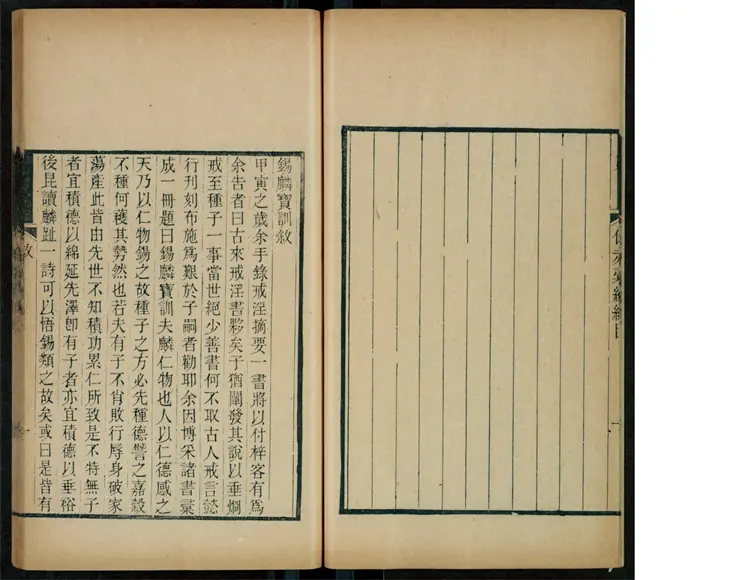 錫麟寶訓敘
甲寅之歲余手錄戒淫摘要一書將以付梓客有為
余告者曰古來戒淫書夥矣于猶闡發其說以垂炯
戒至種子一事當世絕少善書何不取古人戒言懿
行刊刻布施為艱於子嗣者勸耶余因博采諸書彙
成一冊題曰錫麟寶訓夫麟仁物也人以仁德感之
天乃以仁物錫之故種子之方必先種德譬之嘉穀
不種何穫其勢然也若夫有子不肖敗行辱身破家
蕩產此皆由先世不知積功累仁所致是不特無子
者宜積德以綿延先澤卽有子者亦宜積德以垂裕
後昆讀麟趾一詩可以悟錫類之故矣或曰是皆有
敘
一